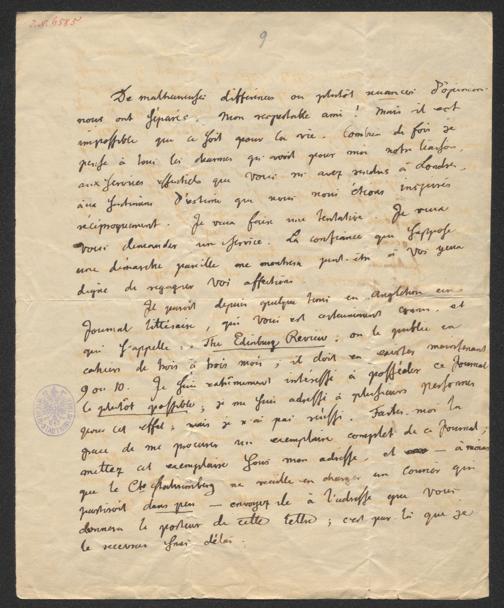 J.N. 6585
9
De malheureuses différences ou plutôt nuances d'opinions
nous ont séparés. Mon respectable ami! Mais il est
impossible que ce soit pour la vie. Combien de fois je
pense à tous les charmes qu'avoit pour moi notre liaison,
aux services essentiels que vous m'avez rendus à Londres,
aux sentimens d'estime que nous nous étions inspirés
réciproquement. Je veux faire une tentative. Je veux
vous demander un service. La confiance que suppose
une démarche pareille me montrera peut-être à vos yeux
digne de regagner vos affections.
Il paroit depuis quelque tems en Angleterre un
Journal litteraire, qui vous est certainement connu, et
qui s'appelle: The Edinburg Review; on le publie en
cahiers de trois à trois mois; il doit en exister maintenant
9 ou 10. Je suis extrêmement intéressé à posséder ce Journal
le plutôt possible; je me suis adressé à plusieurs personnes
pour cet effet, mais je n'ai pas réussi. Faites-moi la
grace de me procurer un exemplaire complet de ce Journal;
mettez cet exemplaire sous mon adresse, et — à moins
que le Cte Stahremberg ne veuille en charger un courier qui
partiroit dans peu — envoyez-le à l'adresse que vous
donnera le porteur de cette lettre; c'est par là que je
le recevrai sans délai.